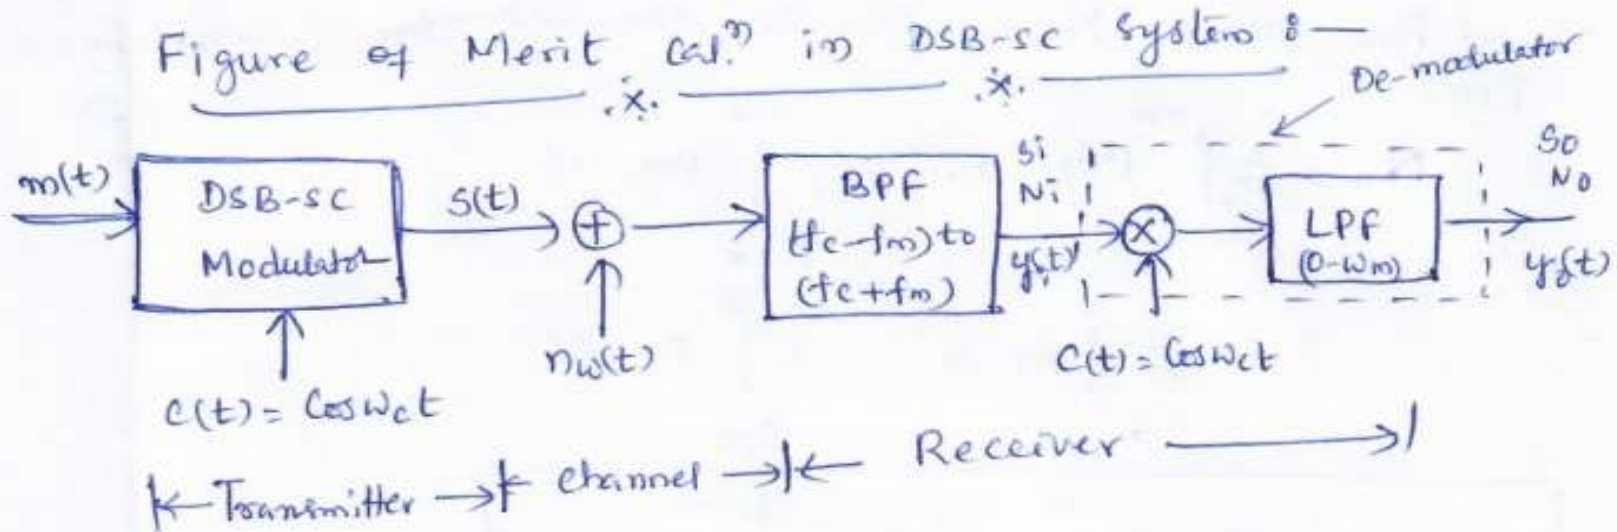 Figure of Merit Cal.ⁿ in DSB-SC System :—
De-modulator
m(t)
DSB-SC
Modulator
S(t)
+
BPF
(fc-fm) to
(fc+fm)
Si
Ni
yi(t)
×
LPF
(0-ωm)
So
No
yo(t)
nω(t)
C(t) = Cosωct
C(t) = Cosωct
Transmitter
channel
Receiver